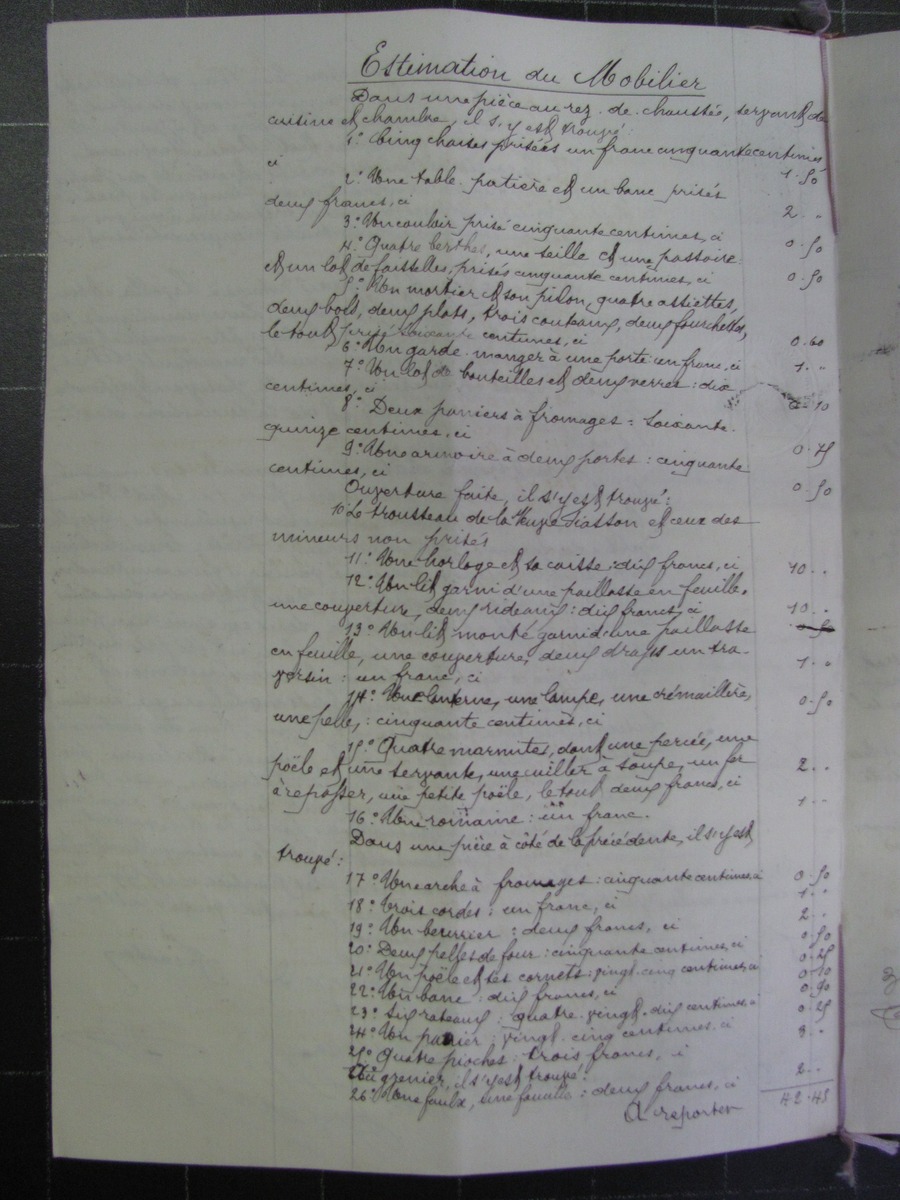 Estimation du Mobilier
Dans une pièce au rez-de-chaussé, servant de
cuisine et chambre, il s'y est trouvé:
1° Cinq chaises prisées un franc cinquante centimes
ci 1.50
2° Une table patière et un banc prisés
deux francs, ci 2. "
3° Un couloir prisé cinquante centimes, ci 0.50
4° Quatre berthes, une seille et une passoire
et un lot de faisselles, prisés cinquante centimes, ci 0.50
5° Un mortier et son pilon, quatre assiettes,
deux bols, deux plats, trois couteaux, deux fourchettes,
le tout prisé soixante centimes, ci 0.60
6° Un garde-manger à une porte: un franc, ci 1. "
7° Un lot de bouteilles et deux verres: dix
centimes, ci 0.10
8° Deux paniers à fromages: soixante-
quinze centimes, ci 0.75
9° Une armoire à deux portes: cinquante
centimes, ci 0.50
Ouverture faite, il s'y est trouvé:
10 Le trousseau de la Veuve et ceux des
mineurs non prisés
11° Une horloge et sa caisse: dix francs, ci 10. "
12° Un lit garni d'une paillasse en feuille,
une couverture, deux rideaux: dix francs, ci 10. "
13° Un lit monté garni d'une paillasse
en feuille, une couverture, deux draps un tra-
versin: un franc, ci 1. "
14° Une lanterne, une lampe, une crémaillère,
une pelle,: cinquante centimes, ci 0.50
15° Quatre marmites, dont une percée, une
poële et une servante, une cuiller à soupe, un fer
à repasser, une petite poële, le tout deux francs, ci 2. "
16° Une romaine: un franc. 1. "
Dans une pièce à côté de la précédente, il s'y est
trouvé:
17° Une arche à fromages: cinquante centimes, ci 0.50
18° Trois cordes: un franc, ci 1. "
19° Un beurrier: deux francs, ci 2. "
20° Deux pelles de four: cinquante centimes, ci 0.50
21° Un poële et ses cornets: vingt-cinq centimes, ci 0.25
22° Un banc: dix francs, ci 0.10
23° Six rateaux: quatre-vingt-dix centimes, ci 0.90
24° Un panier: vingt-cinq centimes, ci 0.25
25° Quatre pioches: trois francs, ci 3. "
Au grenier, il s'y est trouvé:
26° Une faulx, une : deux francs, ci 2. "
A reporter 42.45